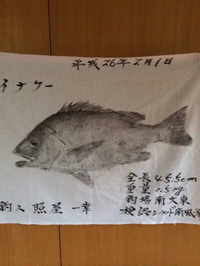 平成26年2月1日
イナクー
全長 45.50m
重量 1.5kg
釣場 南大東
釣人 照屋一幸
検認